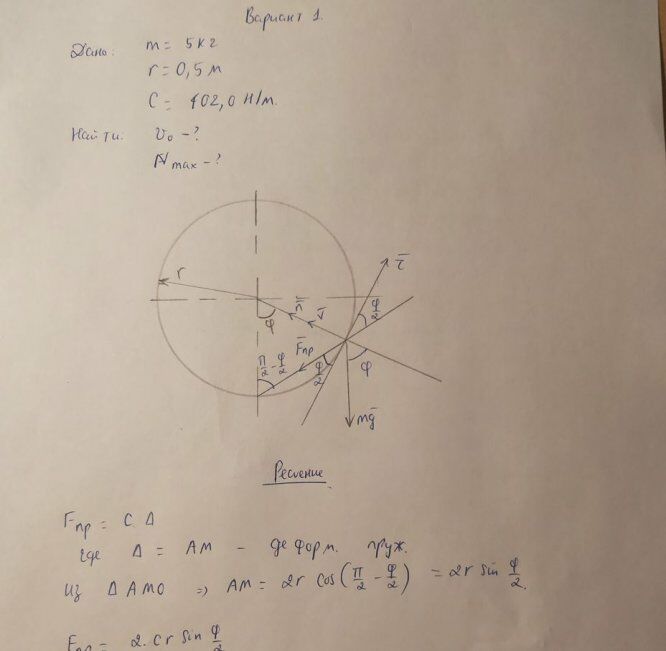 Вариант 1.
Дано: m = 5 кг
r = 0,5 м
C = 402,0 Н/м.
Найти: v₀ - ?
N max - ?
r
τ̄
n̄
φ
φ/2
F̄пр
π/2 - φ/2
φ/2
φ
mḡ
Решение
Fпр = C Δ
где Δ = AM - деформ. пруж.
из Δ AMO => AM = 2r cos(π/2 - φ/2) = 2r sin φ/2.
Fпр = 2·Cr sin φ/2